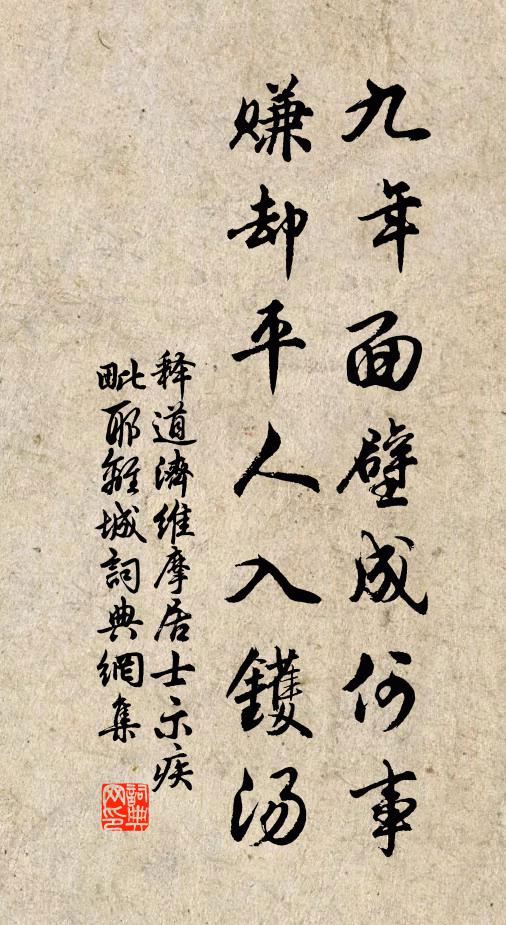 九年面壁成何事
赚却平人入鑊汤
释道濟维摩居士示疾
毗耶離城詞典網集
詞典
网印